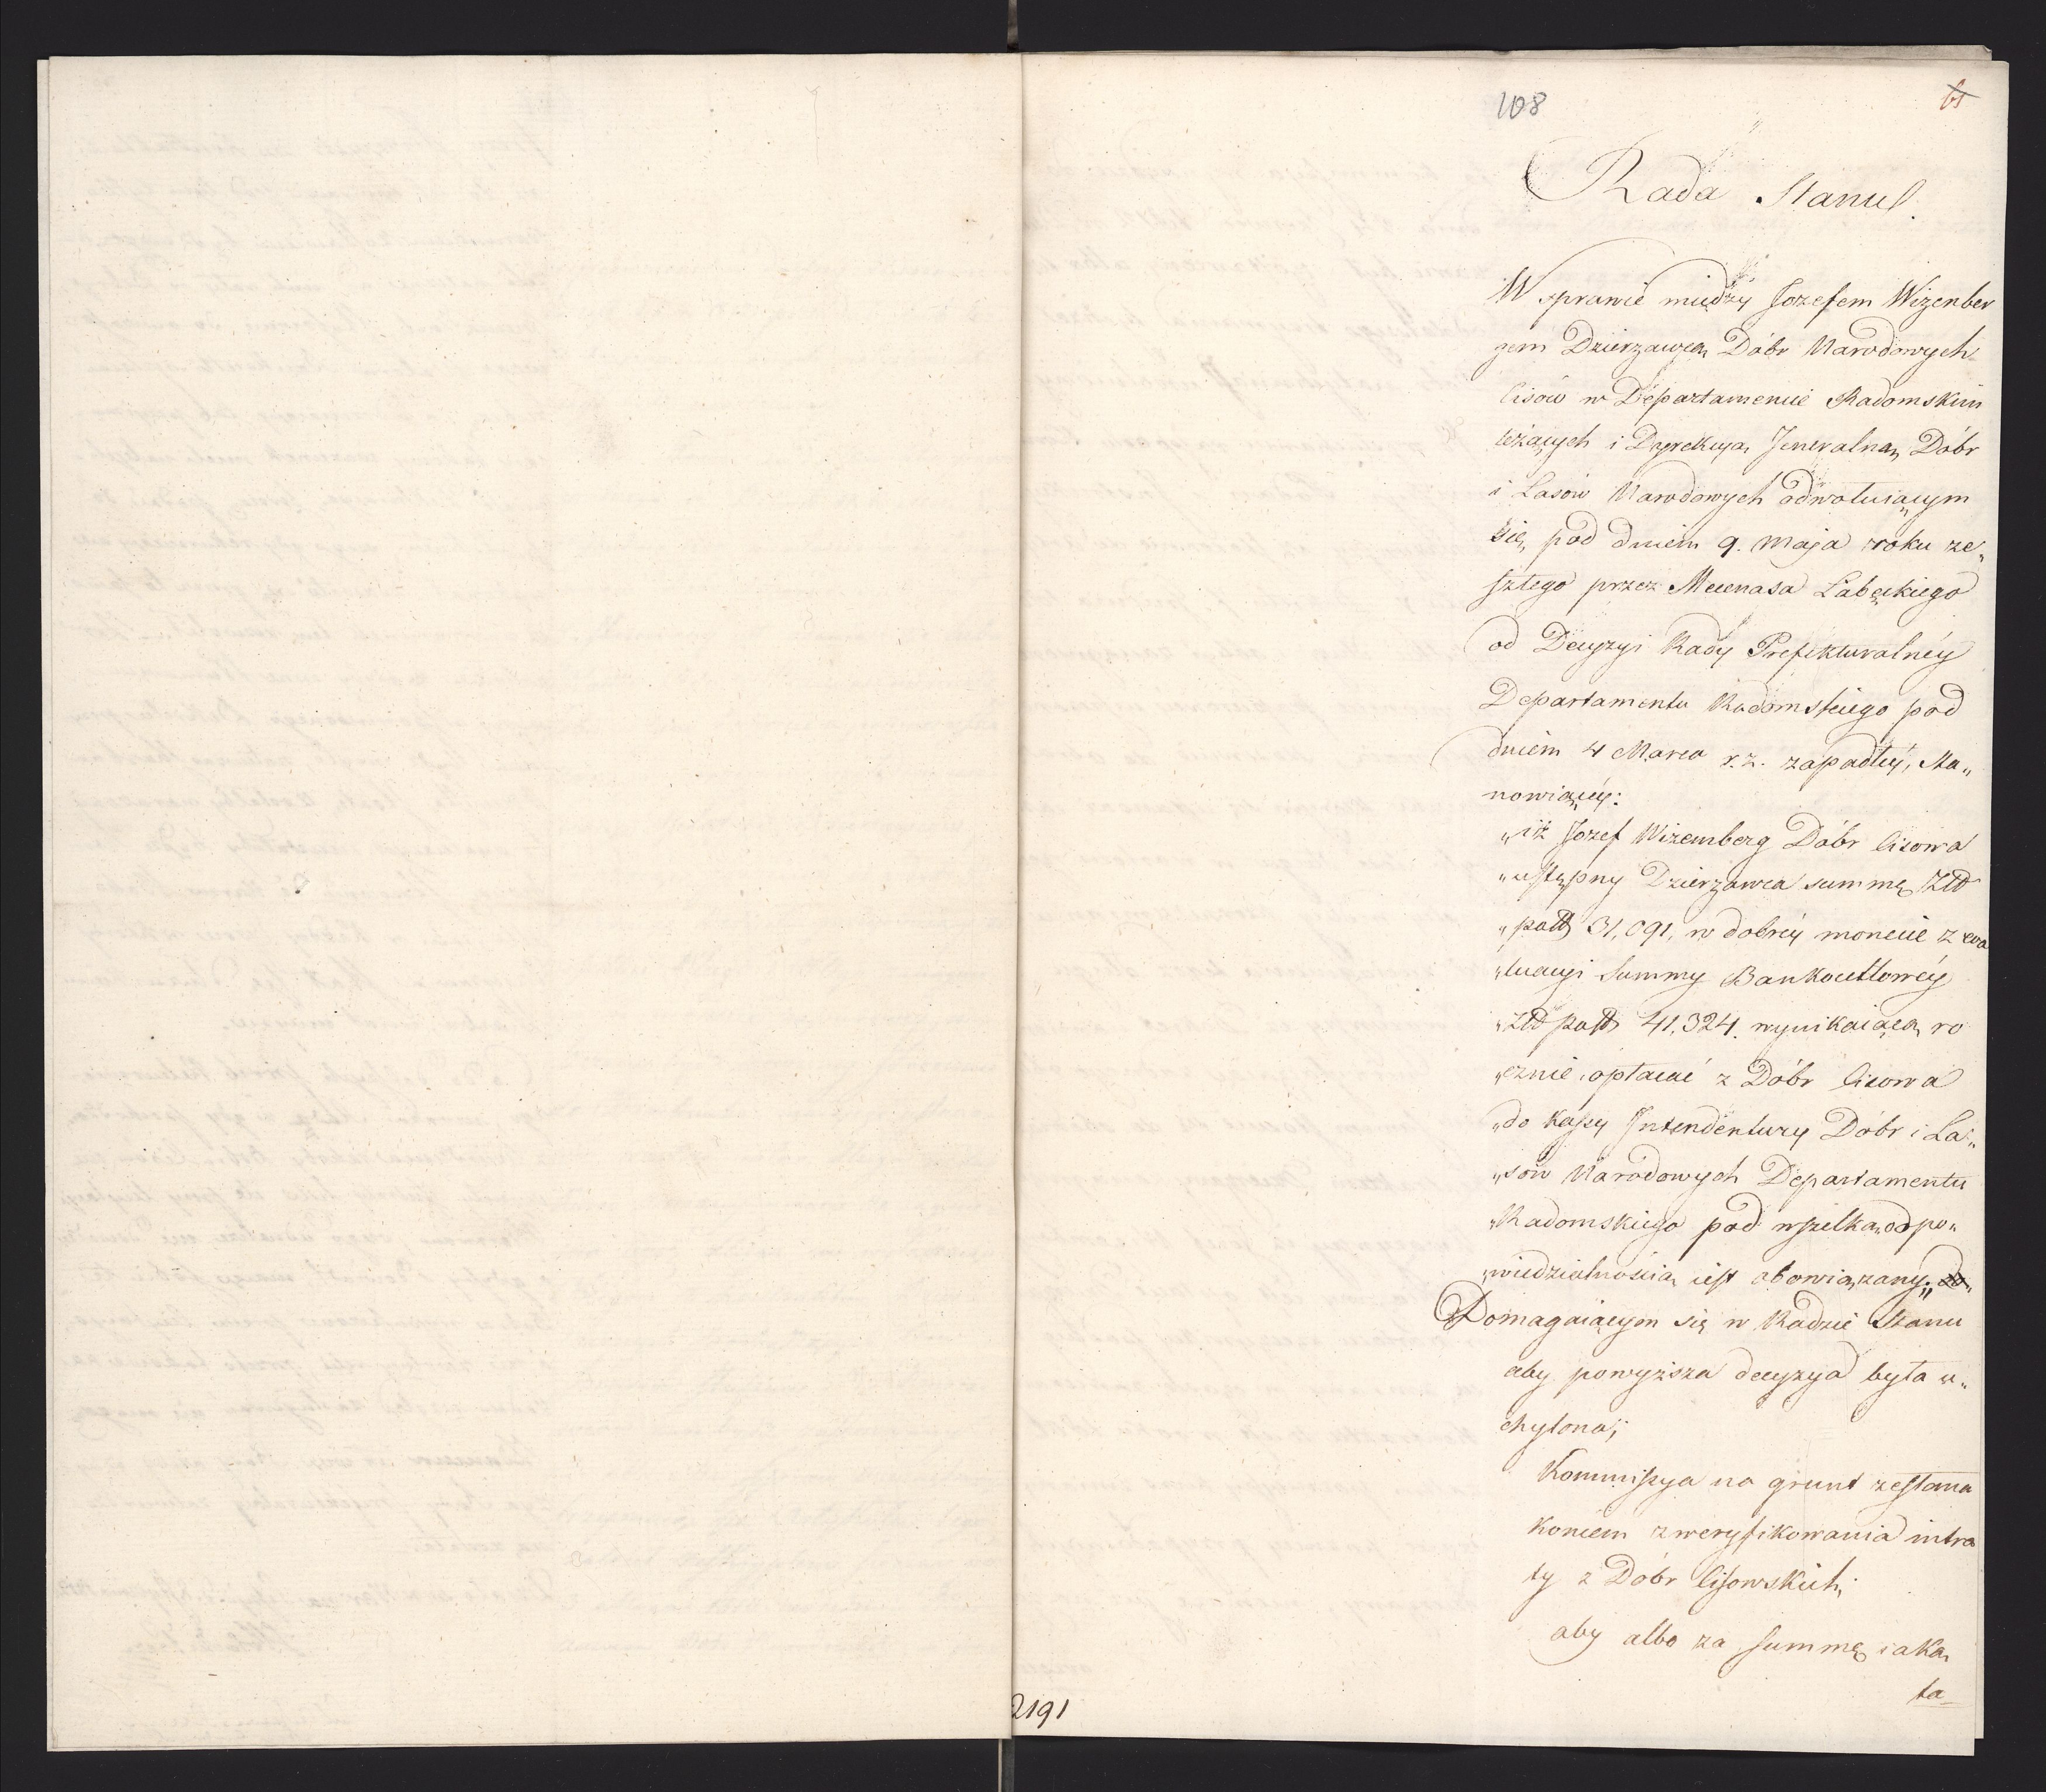 108
61
Rada Stanu.
W sprawie między Jozefem Wizenber
gem Dzierzawcą Dóbr Narodowych
Lisów w Departamencie Radomskim
leżących i Dyrekcyą Jeneralną Dóbr
i Lasów Narodowych odwołuiącym
się, pod dniem 9. Maja roku ze„
szłego przez Mecenasa Łabęckiego
od Decyzyi Rady Prefekturalnéy
Departamentu Radomskiego pod
dniem 4 Marca r. z. zapadłéy, sta„
nowiącéy:
„iż Jozef Wizemberg Dóbr Lisowa
„ustępny Dzierzawca summę Złł
„polł 31,091, w dobréy monecie z ewa
„luacyi Summy Bankocetlowéy
„złł polł 41,324. wynikaiącą ro
„cznie opłacać z Dóbr Lisowa
„do Kassy Intendentury Dóbr i La„
„sów Narodowych Departamentu
„Radomskiego pod wszelką odpo„
„wiedzialnością iest obowiązany„
Domagaiącym się w Radzie Stanu
aby powyższa decyzya była u„
chylona;
Kommissya na grunt zesłana
koncem zweryfikowania intra
ty z Dóbr Lisowskich;
aby albo za summę iaka
ta
2191